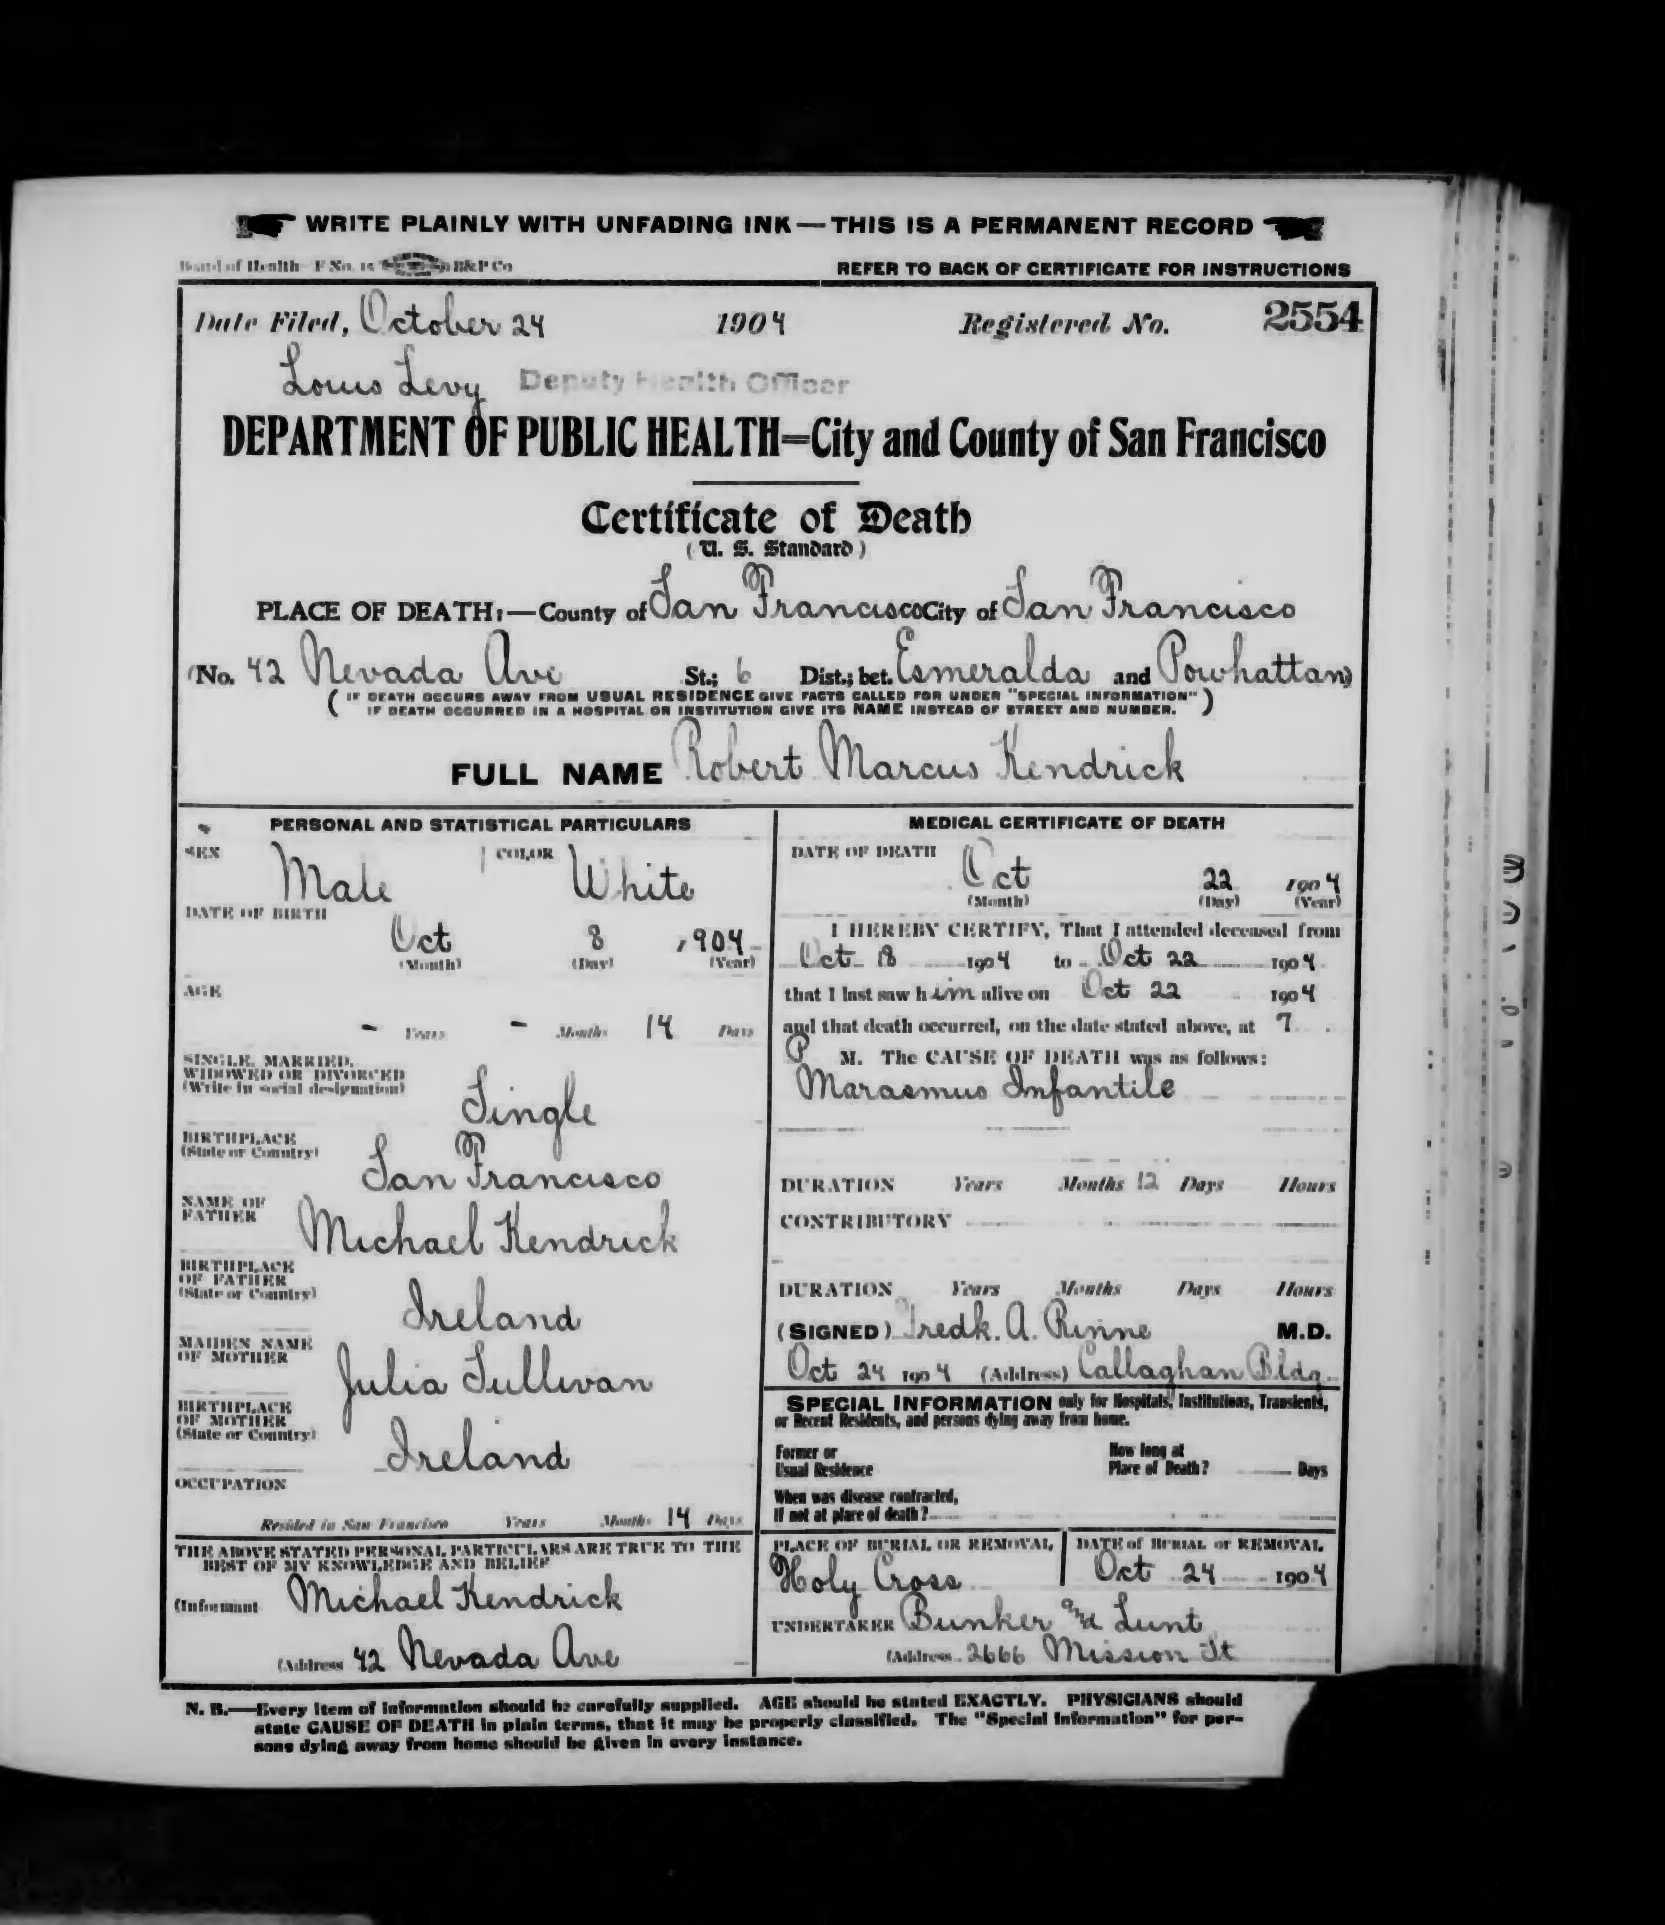 WRITE PLAINLY WITH UNFADING INK—THIS IS A PERMANENT RECORD
Board of Health—F No. 15 B&P Co
REFER TO BACK OF CERTIFICATE FOR INSTRUCTIONS
Date Filed, October 24 1904 Registered No. 2554
Louis Levy Deputy Health Officer
DEPARTMENT OF PUBLIC HEALTH=City and County of San Francisco
Certificate of Death
(U. S. Standard)
PLACE OF DEATH:—County of San Francisco City of San Francisco
(No. 42 Nevada Ave St.; 6 Dist.; bet. Esmeralda and Powhattan)
(IF DEATH OCCURS AWAY FROM USUAL RESIDENCE GIVE FACTS CALLED FOR UNDER "SPECIAL INFORMATION"
IF DEATH OCCURRED IN A HOSPITAL OR INSTITUTION GIVE ITS NAME INSTEAD OF STREET AND NUMBER.)
FULL NAME Robert Marcus Kendrick
PERSONAL AND STATISTICAL PARTICULARS
SEX Male COLOR White
DATE OF BIRTH
Oct 8 1904
(Month) (Day) (Year)
AGE
- Years - Months 14 Days
SINGLE, MARRIED,
WIDOWED OR DIVORCED
(Write in social designation)
Single
BIRTHPLACE
(State or Country)
San Francisco
NAME OF
FATHER
Michael Kendrick
BIRTHPLACE
OF FATHER
(State or Country)
Ireland
MAIDEN NAME
OF MOTHER
Julia Sullivan
BIRTHPLACE
OF MOTHER
(State or Country)
Ireland
OCCUPATION
Resided in San Francisco Years Months 14 Days
THE ABOVE STATED PERSONAL PARTICULARS ARE TRUE TO THE
BEST OF MY KNOWLEDGE AND BELIEF
(Informant Michael Kendrick
(Address 42 Nevada Ave
MEDICAL CERTIFICATE OF DEATH
DATE OF DEATH
Oct 22 1904
(Month) (Day) (Year)
I HEREBY CERTIFY, That I attended deceased from
Oct 18 1904 to Oct 22 1904
that I last saw him alive on Oct 22 1904
and that death occurred, on the date stated above, at 7
P M. The CAUSE OF DEATH was as follows:
Marasmus Infantile
DURATION Years Months 12 Days Hours
CONTRIBUTORY
DURATION Years Months Days Hours
(SIGNED) Fredk. A. Rinne M.D.
Oct 24 1904 (Address) Callaghan Bldg.
SPECIAL INFORMATION only for Hospitals, Institutions, Transients,
or Recent Residents, and persons dying away from home.
Former or
Usual Residence
How long at
Place of Death? Days
When was disease contracted,
If not at place of death?
PLACE OF BURIAL OR REMOVAL
Holy Cross
DATE of BURIAL or REMOVAL
Oct 24 1904
UNDERTAKER Bunker and Lunt
(Address 2666 Mission St
N. B.—Every item of information should be carefully supplied. AGE should be stated EXACTLY. PHYSICIANS should
state CAUSE OF DEATH in plain terms, that it may be properly classified. The "Special Information" for per-
sons dying away from home should be given in every instance.